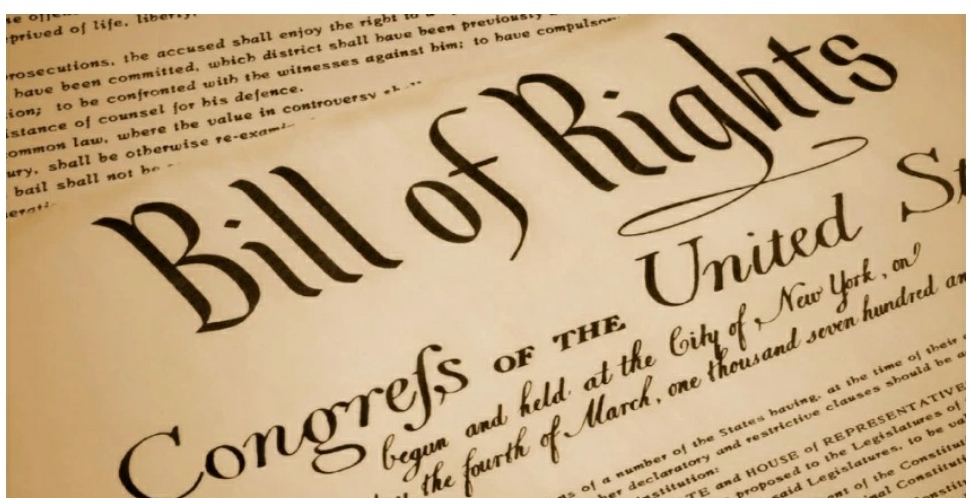 deprived of life, liberty,
prosecutions, the accused shall enjoy the right to a
have been committed, which district shall have been previously
to be confronted with the witnesses against him; to have compulsory
of counsel for his defence.
common law, where the value in controversy
shall be otherwise
bail shall not be
Bill of Rights
Congreſs OF THE United
begun and held at the City of New York, on
the fourth of March, one thousand seven hundred
of a number of the States having, at the time of their
declaratory and restrictive clauses should be
and HOUSE of REPRESENTATIVE
proposed to the Legislatures of
said Legislatures, to be
of the